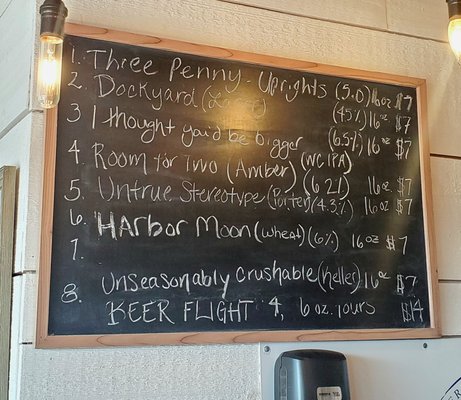 1. Three Penny - Uprights (5.0) 16oz $7
2. Dockyard (Lager) (4.5%) 16oz $7
3 I thought you'd be bigger (6.5%) 16oz $7
(WC IPA)
4. Room for Two (Amber) (6.2%) 16oz $7
5. Untrue Stereotype (Porter) (4.3%) 16oz $7
6. HARbor MOON (wheat) (6%) 16oz $7
7.
8. Unseasonably Crushable (Keller) 16oz $7
BEER FLIGHT 4, 6oz. $14